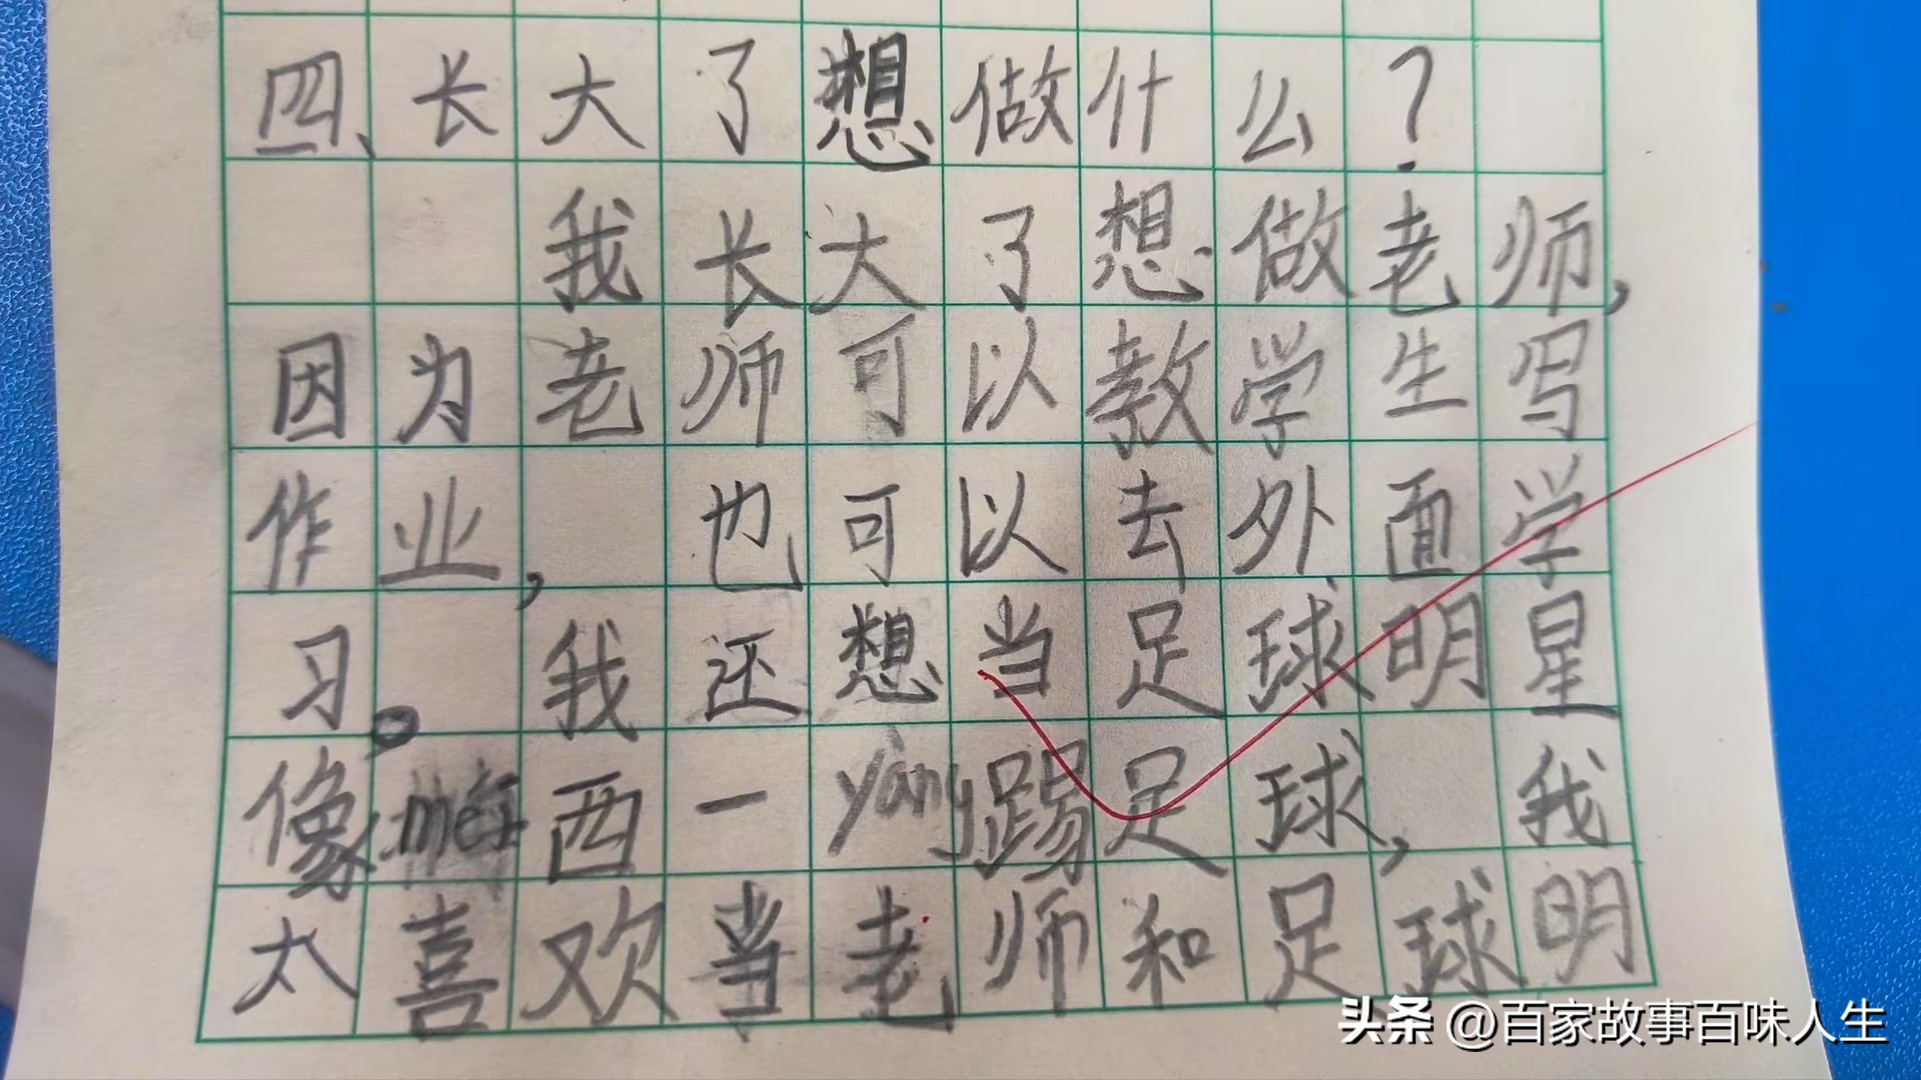 四、长大了想做什么?
我长大了想做老师,
因为老师可以教学生写
作业,也可以去外面学
习。我还想当足球明星
像mei西一yang踢足球,我
太喜欢当老师和足球明
头条 @百家故事百味人生